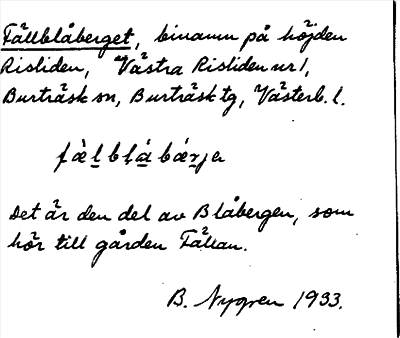 Fällblåberget, binamn på höjden
Risliden, Västra Risliden nr 1,
Burträsk sn, Burträsk tg, Västerb. l.
fὰlblá bárja
Det är den del av Blåbergen, som
hör till gården Fällan.
B. Nygren 1933.